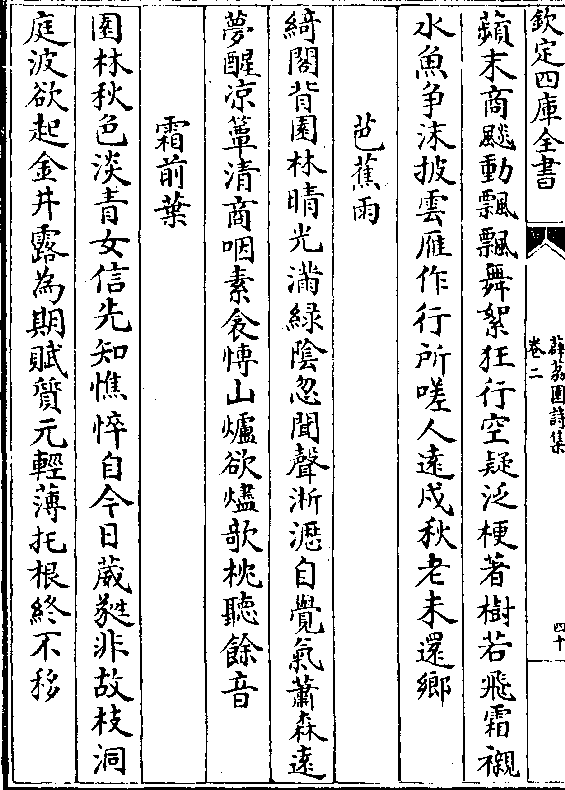 欽定四庫全書
薜荔園詩集
卷二
四十
蘋末商飈動飄飄舞絮狂行空疑泛梗著樹若飛霜襯
水魚争沫披雲雁作行所嗟人遠戍秋老未還鄉
芭蕉雨
綺閣背園林晴光滿綠陰忽聞聲淅瀝自覺氣蕭森遠
夢醒凉簟清商咽素衾博山爐欲燼欹枕聽餘音
霜前葉
園林秋色淡青女信先知憔悴自今日葳蕤非故枝洞
庭波欲起金井露為期賦質元輕薄托根終不移